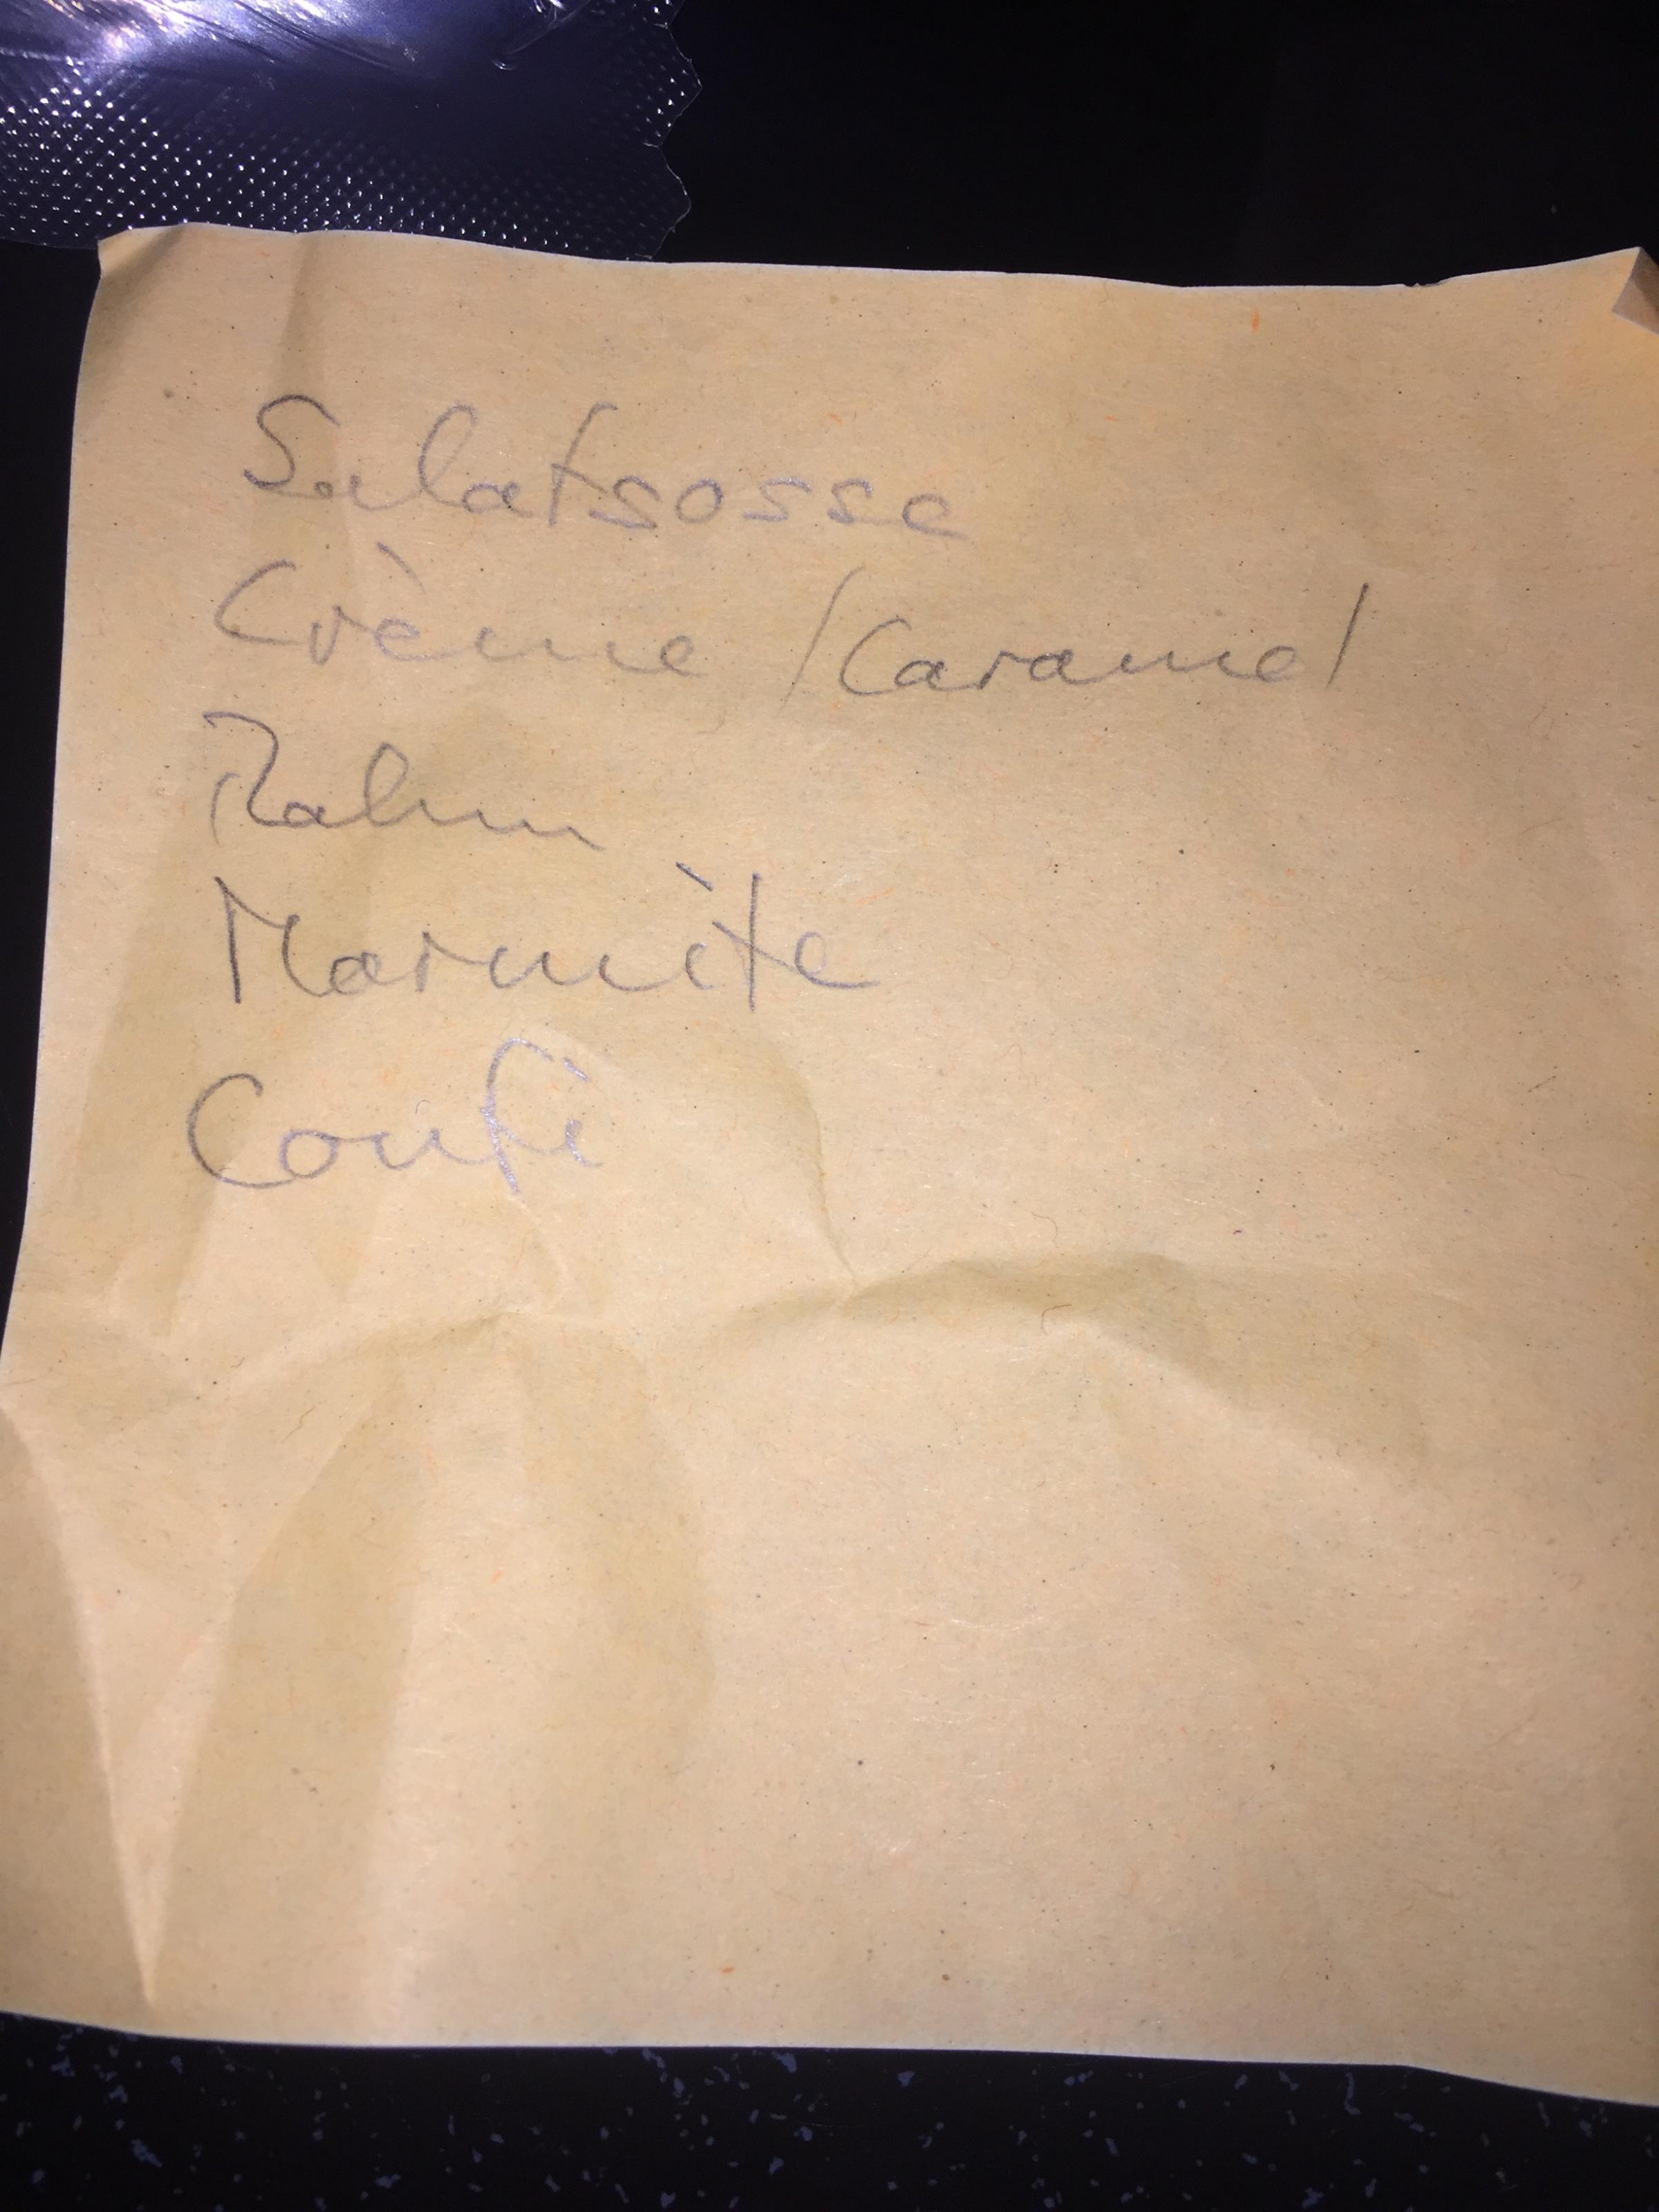 Salatsosse
Crème / Caramel
Rahm
Marmite
Confi